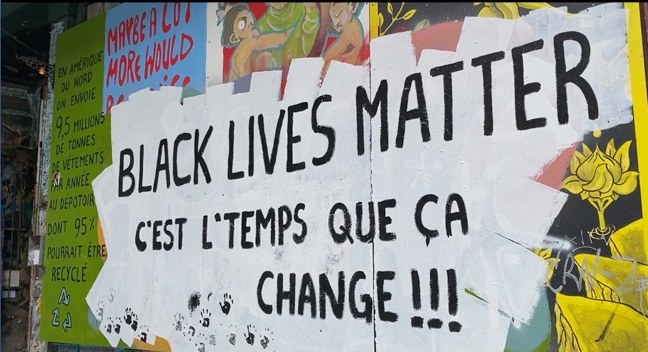 EN AMÉRIQUE
DU NORD
ON ENVOIE
9,5 MILLIONS
DE TONNES
DE VÊTEMENTS
PAR ANNÉE
AU DÉPOTOIR
DONT 95%
POURRAIT ÊTRE
RECYCLÉ
MAYBE A LOT
MORE WOULD
BLACK LIVES MATTER
C'EST L'TEMPS QUE ÇA
CHANGE!!!